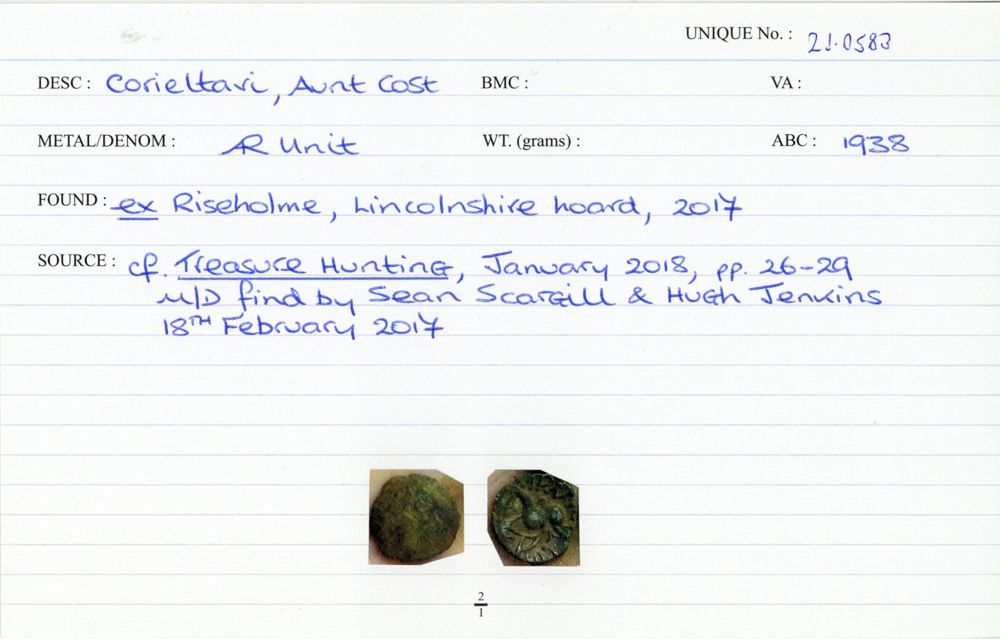 UNIQUE No. : 21.0583
DESC : Corieltavi, Aunt Cost BMC : VA :
METAL/DENOM : AR Unit WT. (grams) : ABC : 1938
FOUND : ex Riseholme, Lincolnshire hoard, 2017
SOURCE : cf. Treasure Hunting, January 2018, pp. 26-29
M/D find by Sean Scargill & Hugh Jenkins
18TH February 2017
2
1